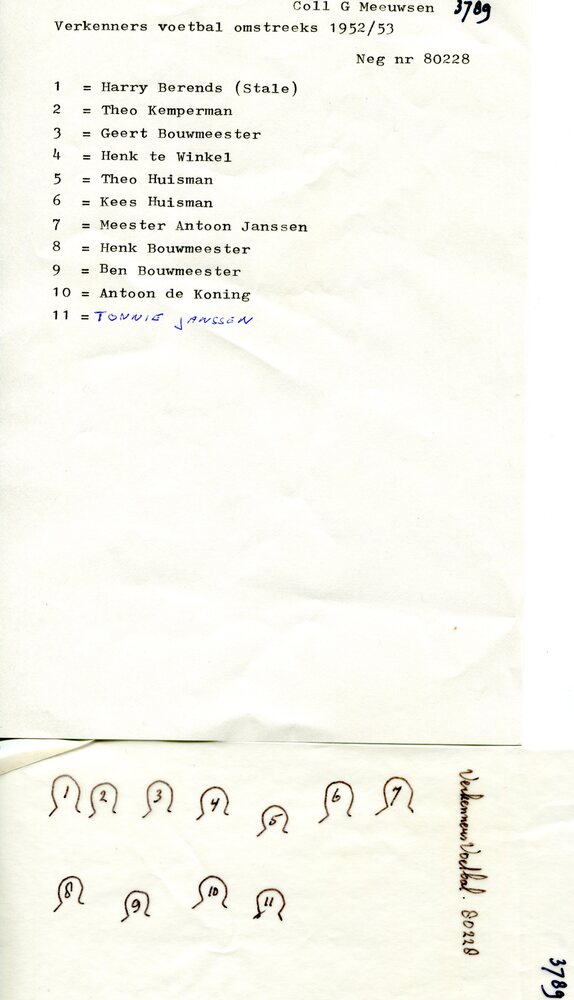 Coll G Meeuwsen 3789
Verkenners voetbal omstreeks 1952/53
Neg nr 80228
1 = Harry Berends (Stale)
2 = Theo Kemperman
3 = Geert Bouwmeester
4 = Henk te Winkel
5 = Theo Huisman
6 = Kees Huisman
7 = Meester Antoon Janssen
8 = Henk Bouwmeester
9 = Ben Bouwmeester
10 = Antoon de Koning
11 = TONNIE JANSSEN
1 2 3 4 5 6 7
8 9 10 11
Verkenners Voetbal. 80228
3789